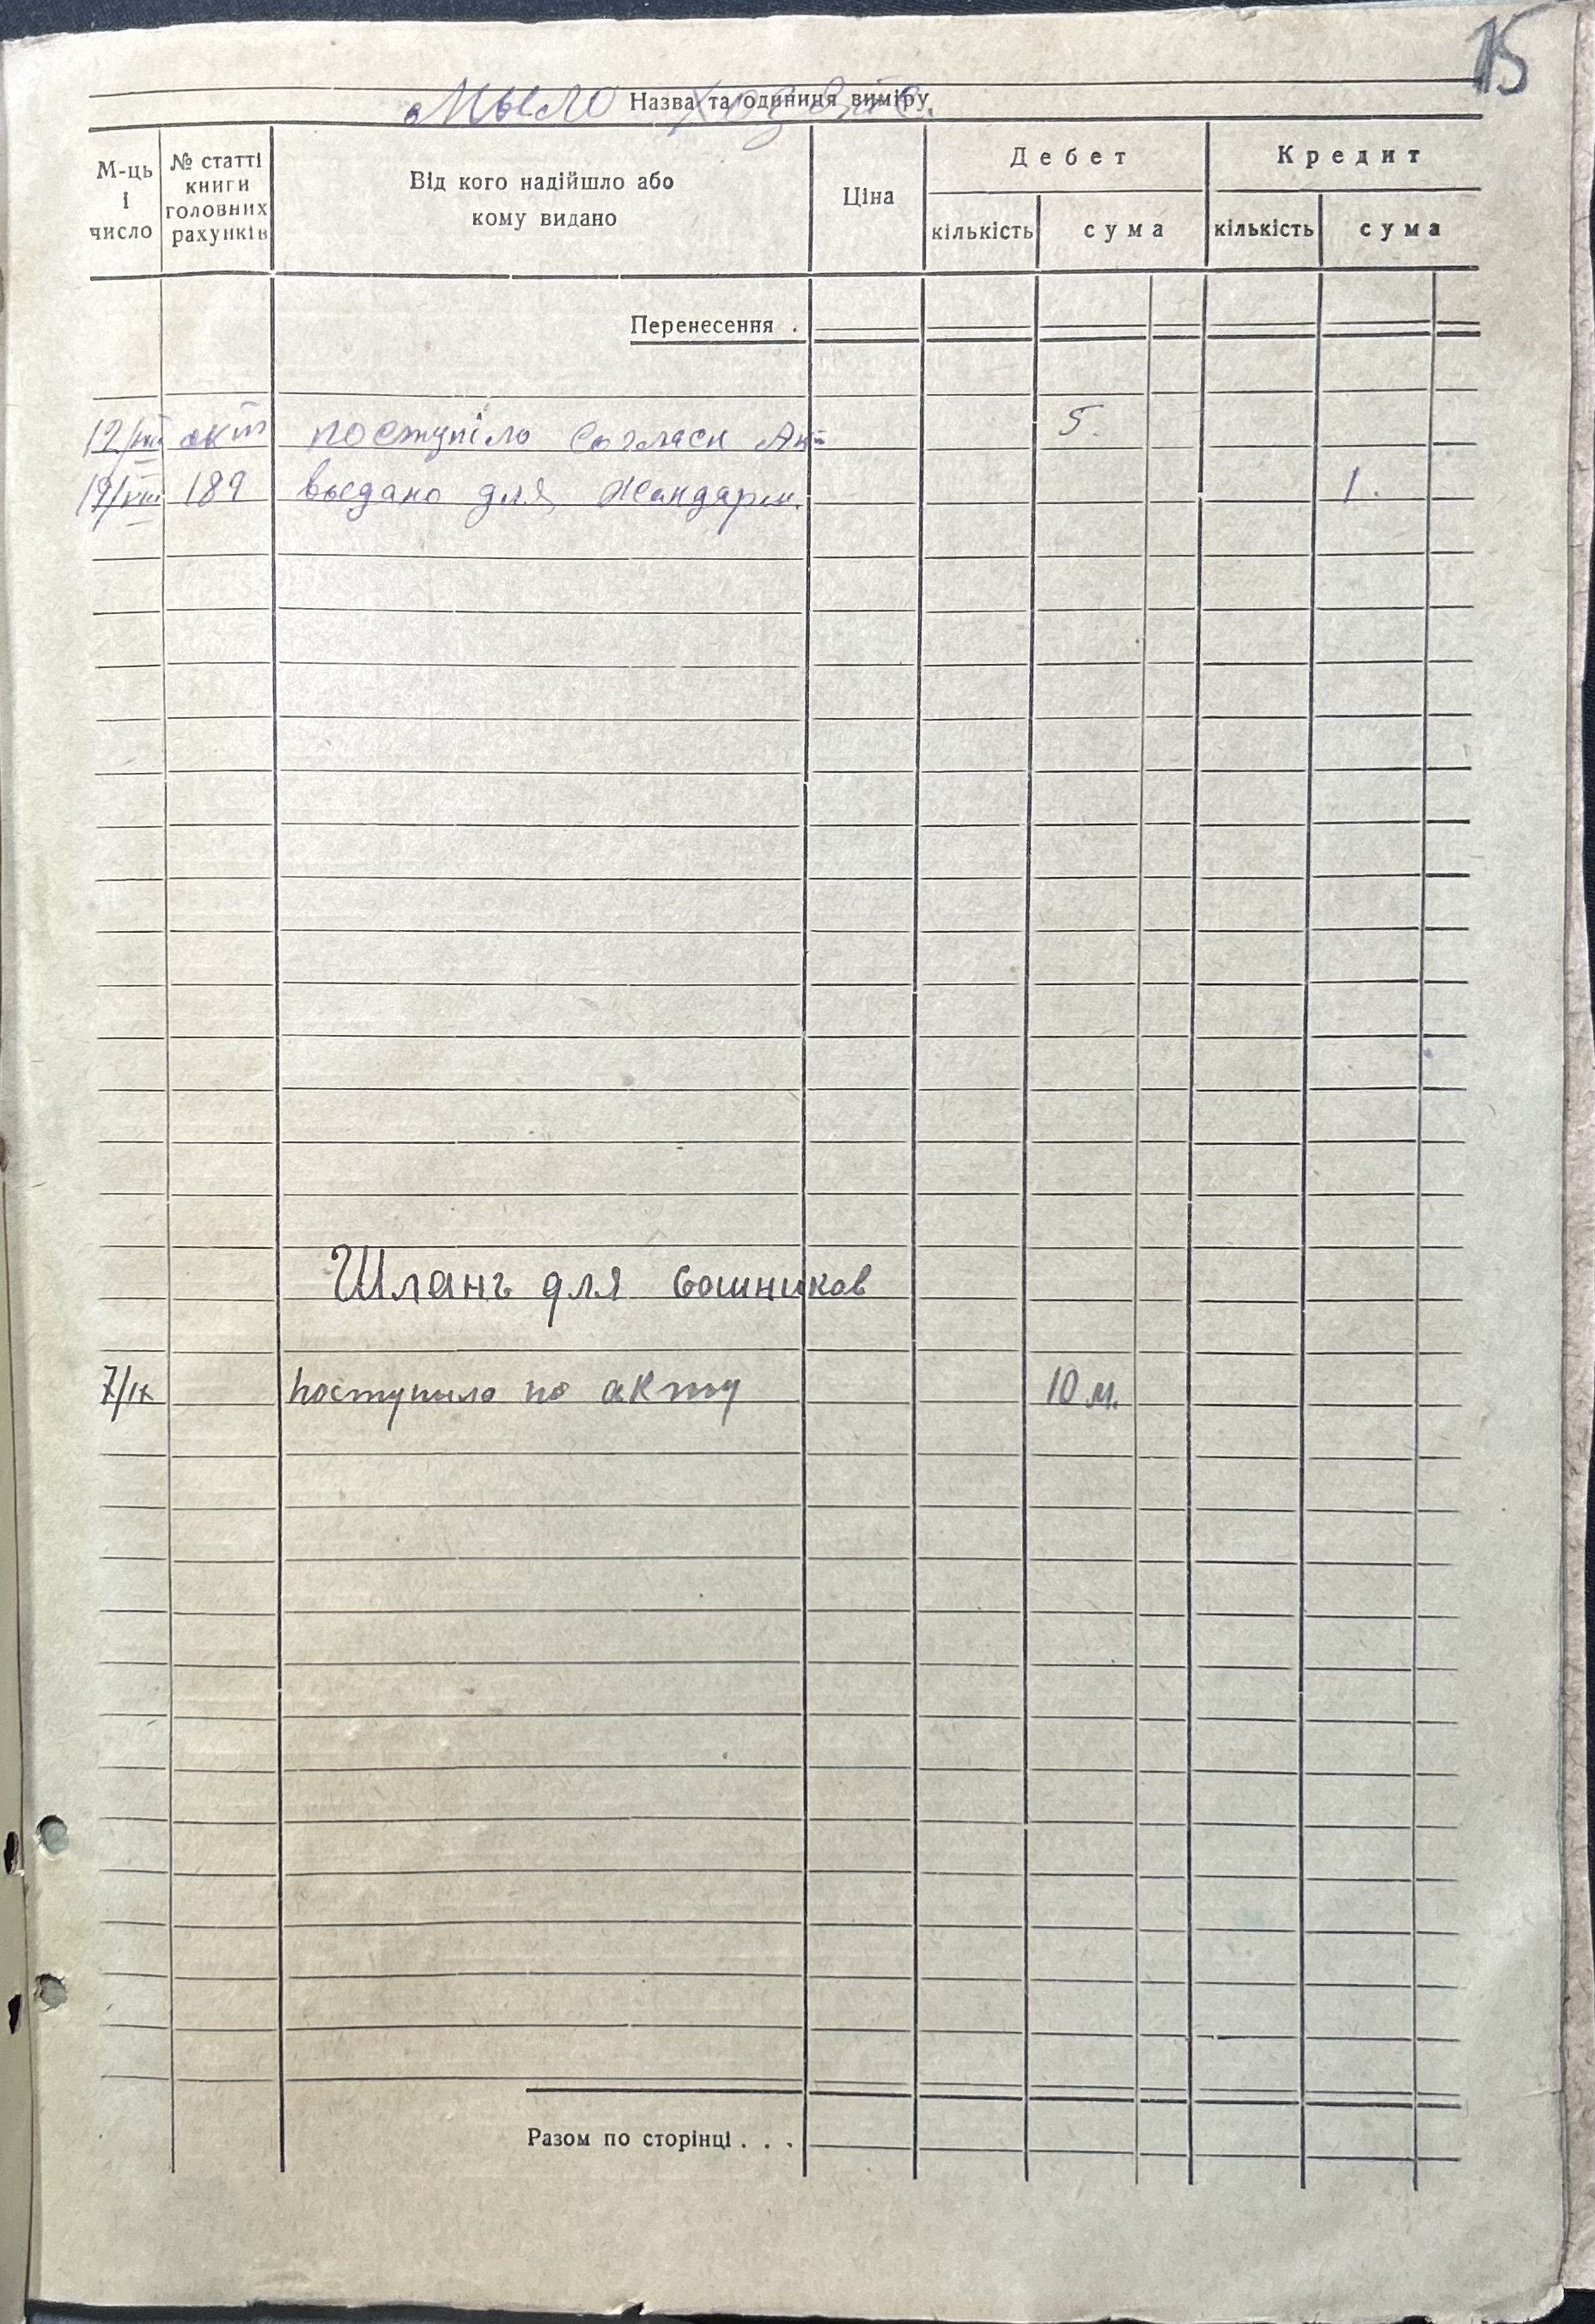 15
Мыло хозяйс.
Назва та одиниця виміру
М-ць і число
№ статті книги головних рахунків
Від кого надійшло або кому видано
Ціна
Дебет
Кредит
кількість
сума
кількість
сума
Перенесення .
12/VIII акт поступило Согласн Акт 5.
19/VIII 189 выдано для Жандарм. 1.
Шланг для сошников
7/IX поступило по акту 10 м.
Разом по сторінці . . .